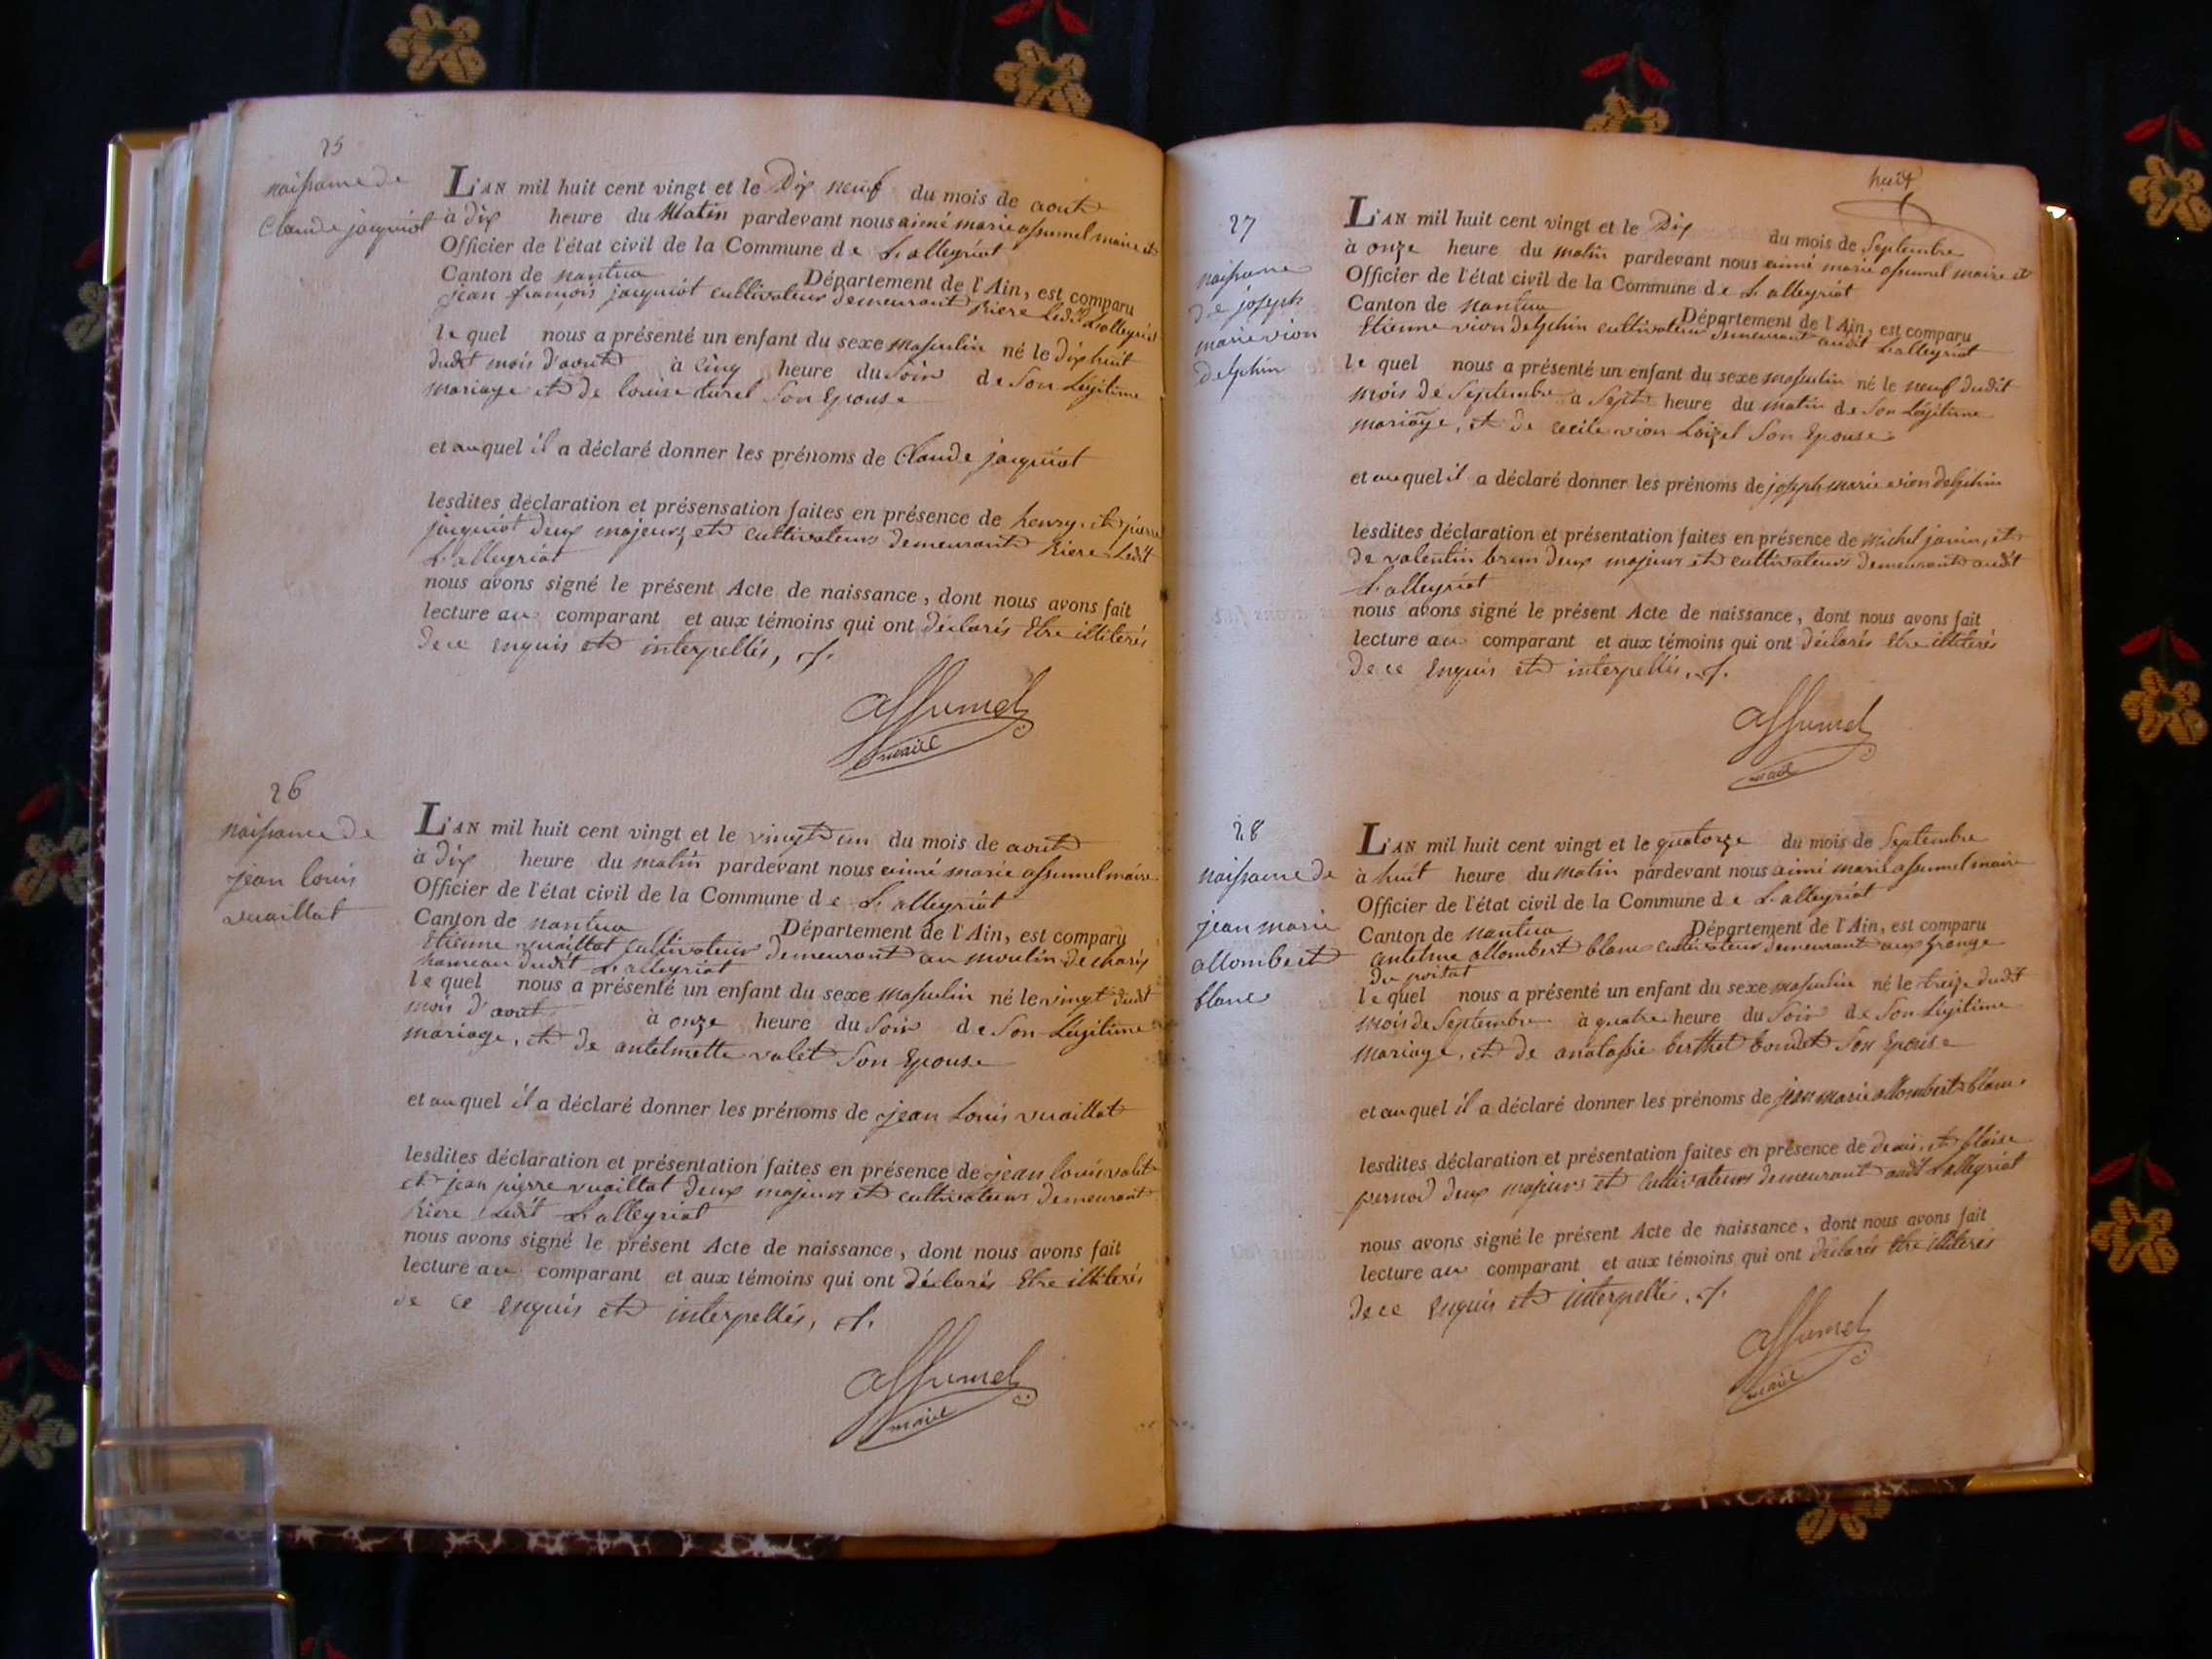 25
naissance de
Claude jacquiot
L'AN mil huit cent vingt et le Dix neuf du mois de aout
à dix heure du Matin pardevant nous aimé marie assumel maire et
Officier de l'état civil de la Commune de L'alleyriat
Canton de nantua Département de l'Ain, est comparu
jean françois jacquiot cultivateur demeurant riere ledit L'alleyriat
le quel nous a présenté un enfant du sexe masculin né le dix huit
dudit mois d'aout à cinq heure du Soir de Son Légitime
mariage et de louise turel Son Epouse
et auquel il a déclaré donner les prénoms de Claude jacquiot
lesdites déclaration et présensation faites en présence de henry et pierre
jacquiot deux majeurs et cultivateurs demeurant riere Ledit
L'alleyriat
nous avons signé le présent Acte de naissance, dont nous avons fait
lecture au comparant et aux témoins qui ont déclarés Etre illiterés
de ce enquis et interpellés,
assumel
maire
26
naissance de
jean louis
vuaillat
L'AN mil huit cent vingt et le vingt un du mois de aout
à dix heure du matin pardevant nous aimé marie assumel maire
Officier de l'état civil de la Commune de L'alleyriat
Canton de nantua Département de l'Ain, est comparu
Etienne vuaillat Cultivateur demeurant au moulin de charix
hameau dudit L'alleyriat
le quel nous a présenté un enfant du sexe masculin né le vingt dudit
mois d'aout à onze heure du Soir de Son Légitime
mariage, et de antelmette valet Son Epouse
et auquel il a déclaré donner les prénoms de jean Louis vuaillat
lesdites déclaration et présentation faites en présence de jean louis valet
et jean pierre vuaillat deux majeurs et cultivateurs demeurant
riere Ledit L'alleyriat
nous avons signé le présent Acte de naissance, dont nous avons fait
lecture au comparant et aux témoins qui ont déclarés Etre illiterés
de ce enquis et interpellés,
assumel
maire
huit
27
naissance
de joseph
marie vion
delphin
L'AN mil huit cent vingt et le Dix du mois de Septembre
à onze heure du matin pardevant nous aimé marie assumel maire et
Officier de l'état civil de la Commune de L'alleyriat
Canton de nantua Département de l'Ain, est comparu
Etienne vion delphin cultivateur demeurant audit L'alleyriat
le quel nous a présenté un enfant du sexe masculin né le neuf dudit
mois de Septembre à Sept heure du matin de Son Légitime
mariage, et de cecile vion Loizel Son Epouse
et auquel il a déclaré donner les prénoms de joseph marie vion delphin
lesdites déclaration et présentation faites en présence de michel janin, et
de valentin brun deux majeurs et cultivateurs demeurant audit
L'alleyriat
nous avons signé le présent Acte de naissance, dont nous avons fait
lecture au comparant et aux témoins qui ont déclarés Etre illiterés
de ce Enquis et interpellés,
assumel
maire
28
naissance de
jean marie
allombert
blanc
L'AN mil huit cent vingt et le quatorze du mois de Septembre
à huit heure du matin pardevant nous aimé marie assumel maire
Officier de l'état civil de la Commune de L'alleyriat
Canton de nantua Département de l'Ain, est comparu
antelme allombert blanc cultivateur demeurant aux Grange
du poizat
le quel nous a présenté un enfant du sexe masculin né le treize dudit
mois de Septembre à quatre heure du Soir de Son Légitime
mariage, et de anatassie berthet bondet Son Epouse
et auquel il a déclaré donner les prénoms de jean marie allombert blanc
lesdites déclaration et présentation faites en présence de denis et blaise
pernod deux majeurs et Cultivateurs demeurant audit L'alleyriat
nous avons signé le présent Acte de naissance, dont nous avons fait
lecture au comparant et aux témoins qui ont déclarés Etre illiterés
de ce Enquis et interpellés,
assumel
maire